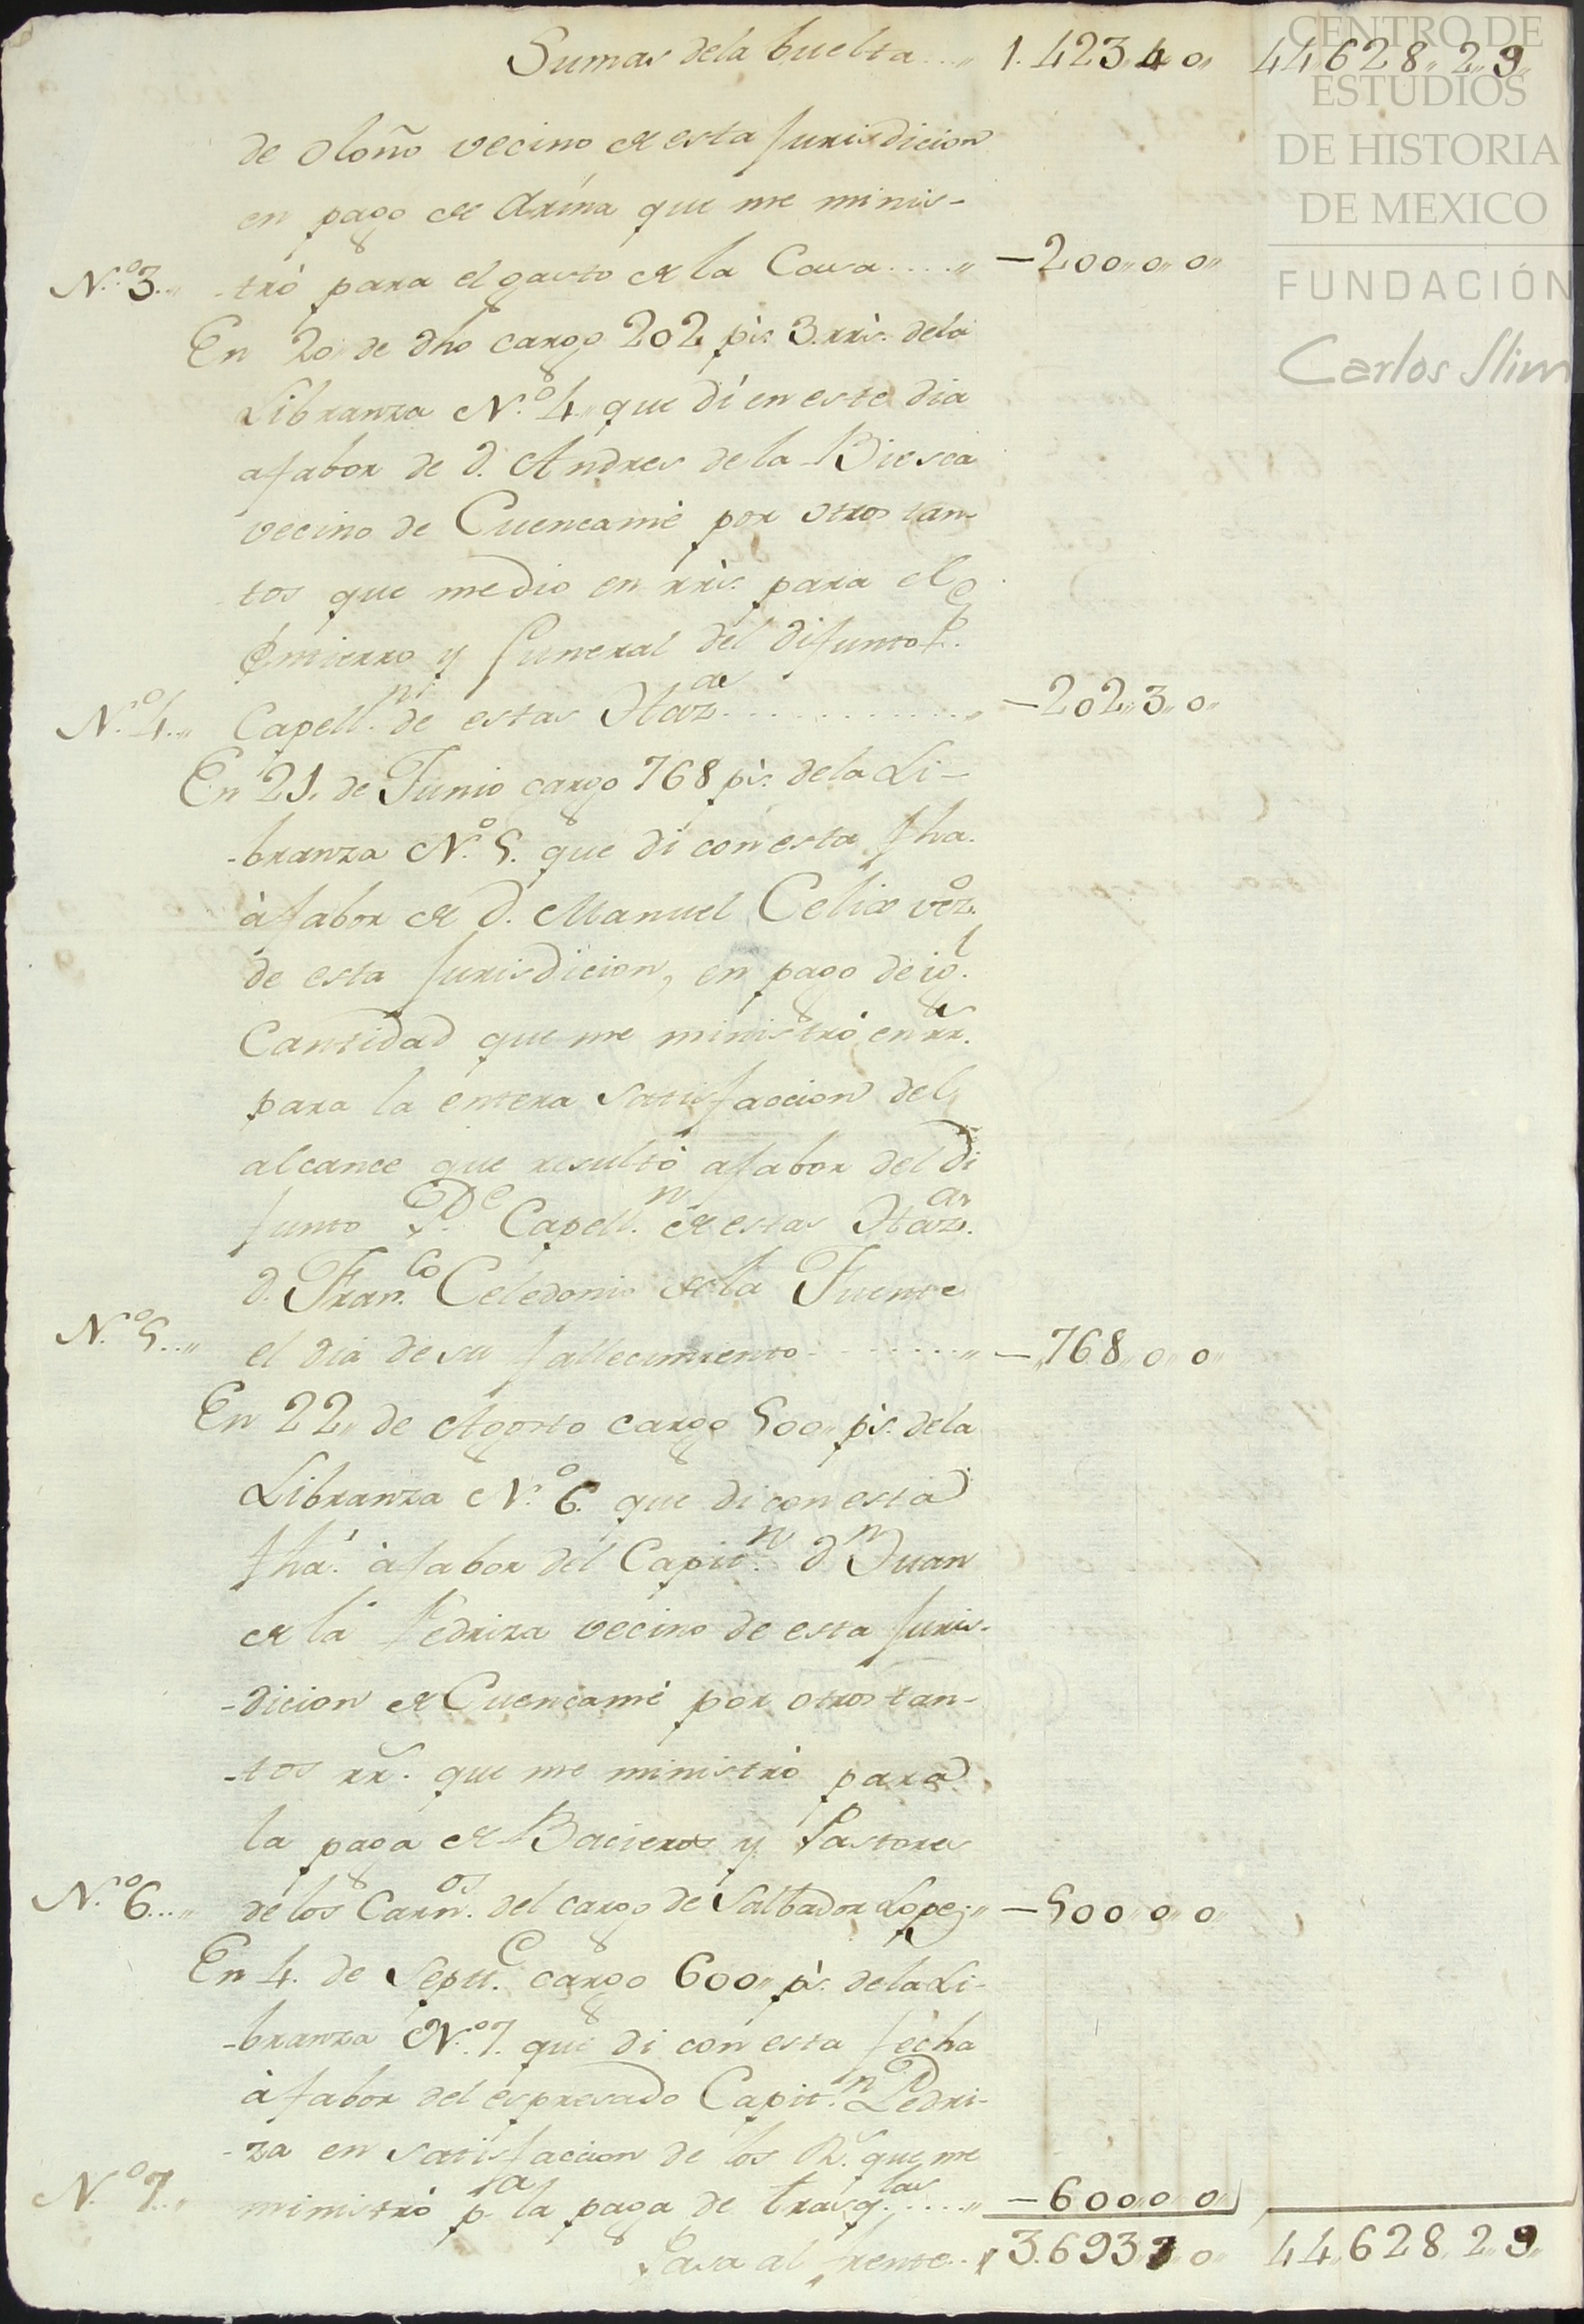 Sumas dela buelta....,, 1.423,,4,,0,, 44,,628,,2,,9,,
CENTRO DE
ESTUDIOS
DE HISTORIA
DE MEXICO
FUNDACIÓN
Carlos Slim
de oloño vecino de esta Jurisdicion
en pago de Arina que me minis-
N.º 3..,, -trò para el gasto de la Casa.....,, -200,,0,,0,,
En 20,, de dho cargo 202 p.s 3 rr.s dela
Libranza N.º 4,, que dí en este dia
a fabor de d. Andres de la Biesca
vecino de Cuencamè por otros tan-
tos que me dio en rr.s para el
Entierro y funeral del difunto P.e
N.º 4..,, Capell.n de estas Haz.das...........,, -202,,3,,0,,
En 21. de Junio cargo 768 p.s de la Li-
-branza N.º 5. que di con esta fha.
à fabor de d. Manuel Celis vez.º
de esta Jurisdicion, en pago de ig.l
Cantidad que me ministrò en rr.s
para la entera satisfaccion del
alcance que resultò a fabor del di
funto P.e Capell.n de estas Haz.as
d. Fran.co Celedonio de la Fuente
N.º 5...,, el dia de su fallecimiento.........,, -,,768,,0,,0,,
En 22,, de Agosto cargo 500,, p.s dela
Libranza N.º 6. que di con esta
fha. à fabor del Capit.n d.n Juan
de la Pedriza vecino de esta Juris-
-dicion de Cuencamè por otros tan-
-tos rr.s que me ministrò para
la paga de Bacieros y Pastores
N.º 6...,, de los Carn.os del cargo de Salbador Lopez,, -500,,0,,0,,
En 4. de Sept.e cargo 600,, p.s de la Li-
-branza N.º 7. que di con esta fecha
à fabor del espresado Capit.n Pedri-
-za en satisfaccion de los R.s que me
N.º 7..,, ministrò p.a la paga de trasq.las.....,, -600,,0,,0,,
Pasa al frente.. 3.693,,7,,0,, 44,,628,,2,,9,,